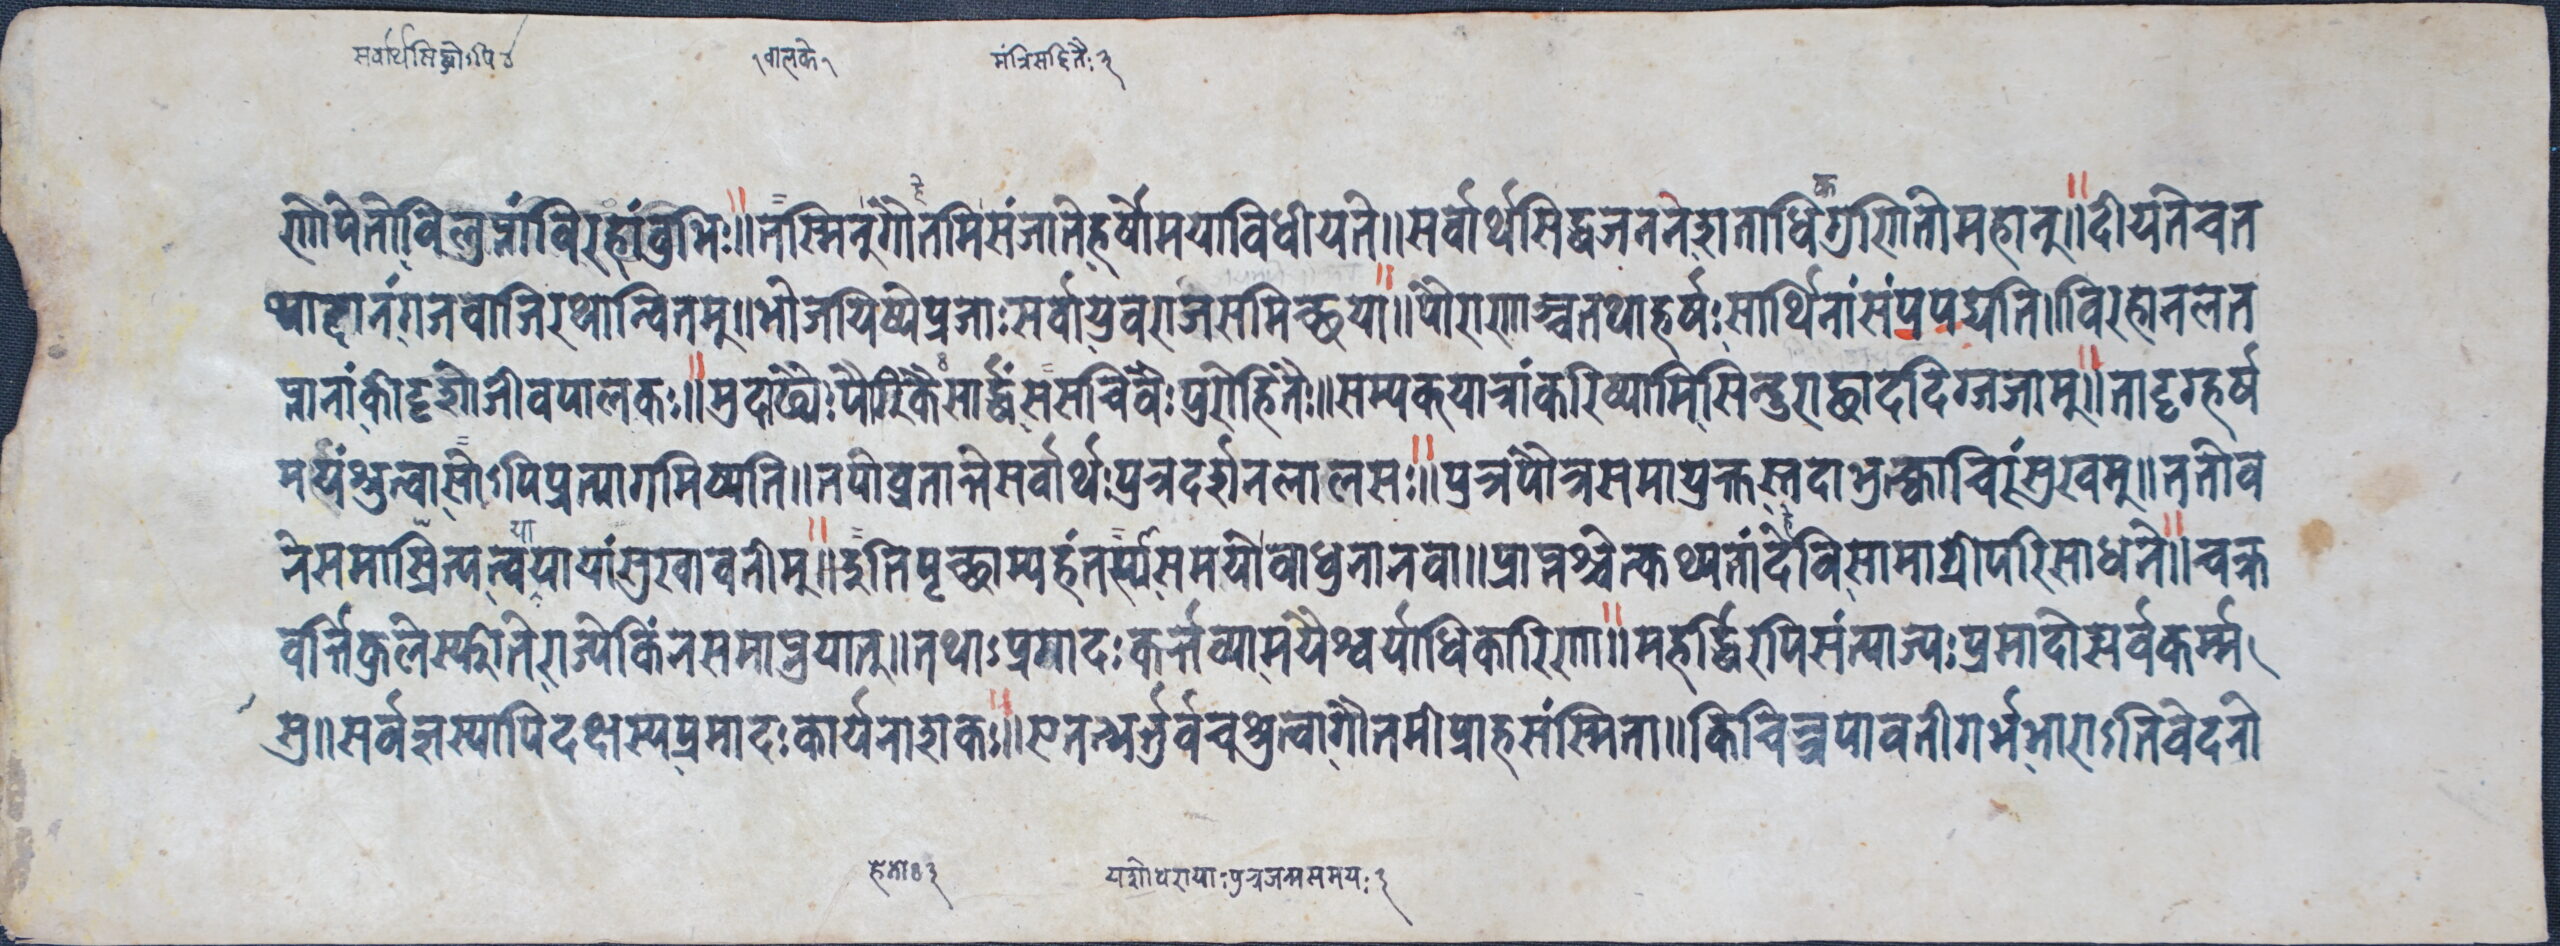 सर्वार्थसिद्धोऽपि ४ १ बालके १ मंत्रिसहितैः ३
णोपेतो विलुनां विरहांवुभिः॥ तस्मिन् गौतमि संजाते हर्षो मया विधीयते॥ सर्वार्थसिद्धजननेज्ञाताधिगुणितो महान्॥ दीयते च त
था दानं गजवाजिरथान्वितम्॥ भोजयिष्ये प्रजाः सर्वा युवराजसमिच्छया॥ पौराणाञ्च तथा हर्षः सार्थिनां संप्रपद्यति॥ विरहानलत
प्तानां कीदृशो जीवपालकः॥ मुदाढ्यैः पौरिकै सार्द्धं स सचिवैः पुरोहितैः॥ सम्यक् यात्रां करिष्यामि सिन्दुराछाददिग्व्रजाम्॥ तादृग्हर्ष
मयं श्रुत्वा सोऽपि प्रत्यागमिष्यति॥ तपोव्रतान्ते सर्वार्थः पुत्रदर्शनलालसः॥ पुत्रं पौत्रसमायुक्तस्तदा भुत्क्वा चिरं सुखम्॥ ततो व
ने समाश्रित्य त्वया यां सुखावतीम्॥ इति पृच्छाम्यहं तस्य समयो वाधुना न वा॥ प्राप्तश्चेत्कथ्यतां देवि सामाग्री परिसाधने॥ चक्र
वर्त्तिकुले स्फीते राज्ये किं न समाप्नुयात्॥ तथाऽप्रमादः कर्त्तव्यो मयैश्वर्याधिकारिणा॥ महर्द्धिरपि संत्याज्यः प्रमादो सर्वकर्म्म
सु॥ सर्वज्ञस्यापि दक्षस्य प्रमादः कार्यनाशकः॥ एतन्भर्त्तुर्वच श्रुत्वा गौतमी प्राह सस्मिता॥ किंचित्त्रपावती गर्भभाराऽतिवेदनी
हेतोः ३ यशोधरायाः पुत्रजन्मसमयः ३